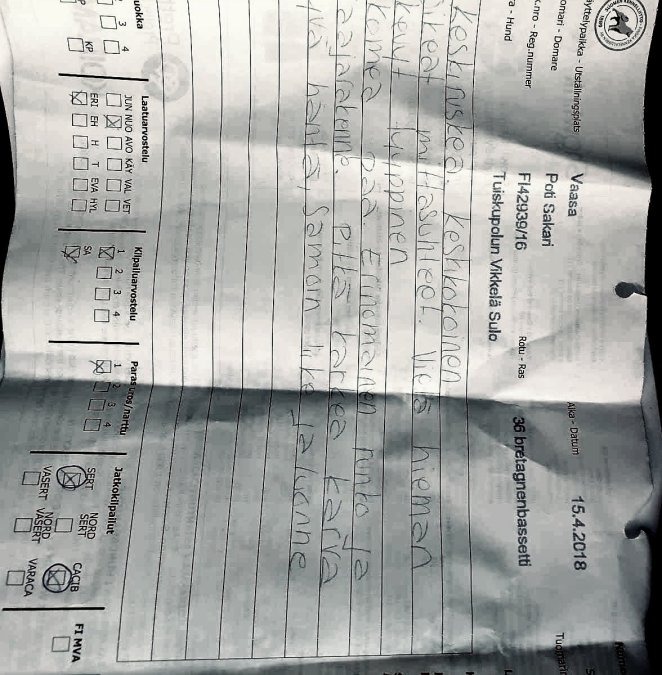 äyttelypaikka - Utställningsplats Vaasa Aika - Datum 15.4.2018
omari - Domare Poti Sakari Tuomari
k.nro - Reg.nummer FI42939/16 Rotu - Ras 36 bretagnenbassetti
ra - Hund Tuiskupolun Vikkelä Sulo
mittasuhteet. Vielä hieman
kevyt
komea pää. Erinomainen runko ja
aajarakenne. Pitkä karkea karva
vä häntä, Samoin liike ja luonne
uokka Laatuarvostelu Kilpailuarvostelu Paras uros/narttu Jatkokilpailut FI MVA
3 4 JUN NUO AVO KÄY VAL VET 1 2 3 4 1 2 3 4 SERT NORD SERT CACIB
KP ERI EH H T EVA HYL SA VASERT NORD VASERT VARACA